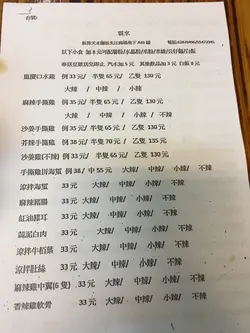 質來
以下小食 加 8 元可配
風閣口水雞 例 33 元/ 半隻 65 元/ 乙隻 130 元
大辣 / 中辣 / 小辣 /
麻辣手撕雞 例 35 元/ 半隻 65 元/ 乙隻 130 元
沙薑手撕雞 例 35 元/ 半隻 65 元/ 乙隻 130 元
芥辣手撕雞 例 35 元/ 半隻 70 元/ 乙隻 135 元
沙薑雞(不辣) 例 33 元/ 半隻 65 元/ 乙隻 130 元
手撕雞拼海蜇 例 38/ 中 55 元 大辣/ 中辣/ 小辣/ 不辣
涼拌海蜇 33 元 大辣/ 中辣/ 小辣/ 不辣
麻辣豬腸 33 元 大辣/ 中辣/ 小辣/ 不辣
紅油雞耳 33 元 大辣/ 中辣/ 小辣/ 不辣
蒜泥白肉 33 元 大辣/ 中辣/ 小辣/ 不辣
涼拌牛栢葉 33 元 大辣/ 中辣/ 小辣/ 不辣
涼拌肚絲 33 元 大辣/ 中辣/ 小辣/ 不辣
麻辣雞中翼(6 隻) 33 元 大辣/ 中辣/ 小辣/ 不辣
香辣雞軟骨 33 元 大辣/ 中辣/ 小辣/ 不辣